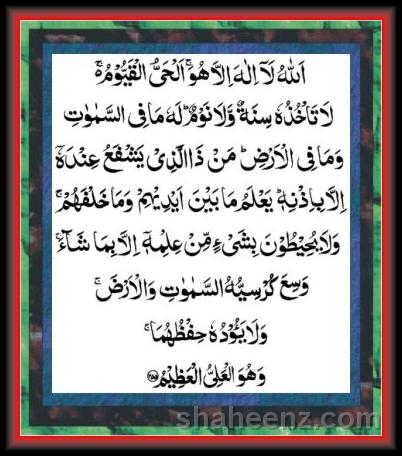 اَللهُ لَآ اِلٰهَ اِلَّا هُوَۚ اَلْحَیُّ الْقَیُّوْمُ ۚ
لَا تَاْخُذُهٗ سِنَةٌ وَّلَا نَوْمٌؕ لَهٗ مَا فِی السَّمٰوٰتِ
وَمَا فِی الْاَرْضِؕ مَنْ ذَا الَّذِیْ یَشْفَعُ عِنْدَهٗۤ
اِلَّا بِاِذْنِهٖؕ یَعْلَمُ مَا بَیْنَ اَیْدِیْهِمْ وَمَا خَلْفَهُمْۚ
وَلَا یُحِیْطُوْنَ بِشَیْءٍ مِّنْ عِلْمِهٖۤ اِلَّا بِمَا شَآءَۚ
وَسِعَ كُرْسِیُّهُ السَّمٰوٰتِ وَالْاَرْضَۚ
وَلَا یَـُٔوْدُهٗ حِفْظُهُمَاۚ
وَهُوَ الْعَلِیُّ الْعَظِیْمُ ﴿۲۵۵﴾
shaheenz.com